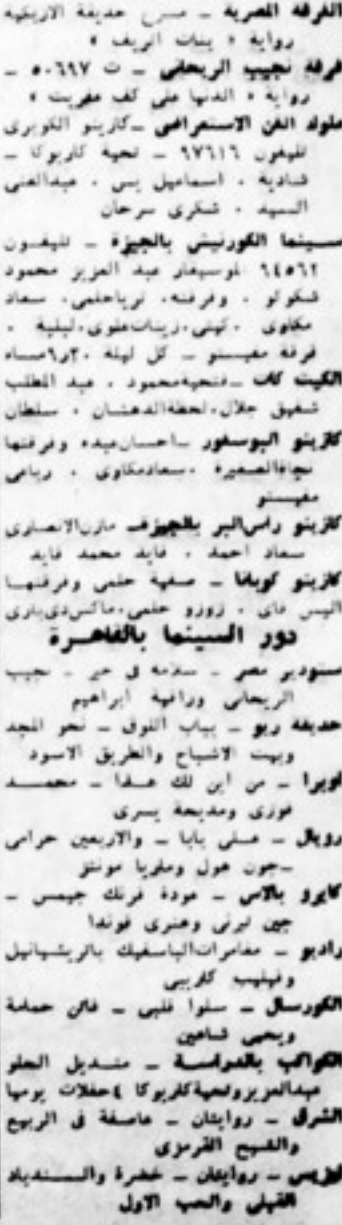 الفرقة المصرية ـ مسرح حديقة الازبكية
رواية « بنات الريف »
فرقة نجيب الريحانى ـ ت ٥٠٦٩٧ ـ
رواية « الدنيا على كف عفريت »
ملوك الفن الاستعراضى ـ كازينو الكوبرى
تليفون ٩٧٦١٦ ـ تحية كاريوكا ـ
شادية ، اسماعيل يس ، عبدالغنى
السيد ، شكرى سرحان
سينما الكورنيش بالجيزة ـ تليفون
٦٤٥٦٢ الموسيقار عبد العزيز محمود
شكوكو ، وفرقته، ثرياحلمى، سعاد
مكاوى ،كيتى،زينات علوى،ليلية ،
فرقة ـ كل ليلة ٦٫٣٠ مساء
الكيت كات ـ فتحية محمود ، عبد المطلب
شفيق جلال، لحظة الدهشان ، سلطان
كازينو البوسفور ـ احسان عبده وفرقتها
نجاة الصغيرة ،سعاد مكاوى ،
كازينو راس البر بالجيزة ـ مازن الانصارى
سعاد احمد ، فايد محمد فايد
كازينو كوبانا ـ صفية حلمى وفرقتهـا
اليس ، زوزو حلمى،
دور السينما بالقاهـرة
ستوديو مصر ـ سلامه فى خير ـ نجيب
الريحانى وراقية ابراهيم
حديقة ريو ـ بباب اللوق ـ نحو المجد
وبيت الاشباح والطريق الاسود
اوبرا ـ من اين لك هـذا ـ محمـد
فوزى ومديحة يسرى
رويال ـ عـلى بابا ـ والاربعين حرامى
ـ جون هول وماريا مونتز
كايرو بالاس ـ عودة فرنك جيمس ـ
جين تيرنى وهنرى فوندا
راديو ـ مغامرات الباسفيك
الكورسال ـ سلوا قلبى ـ فاتن حمامة
ويحيى شاهين
الكواكب بالدراسـة ـ منـديل الحلو
عبدالعزيز وتحية كاريوكا ٤ حفلات يوميا
الشرق ـ روايتان ـ عاصفة فى الربيع
والشبح القرمزى
ايزيس ـ روايتان ـ خضرة والسـندباد
القبلى والحب الاول